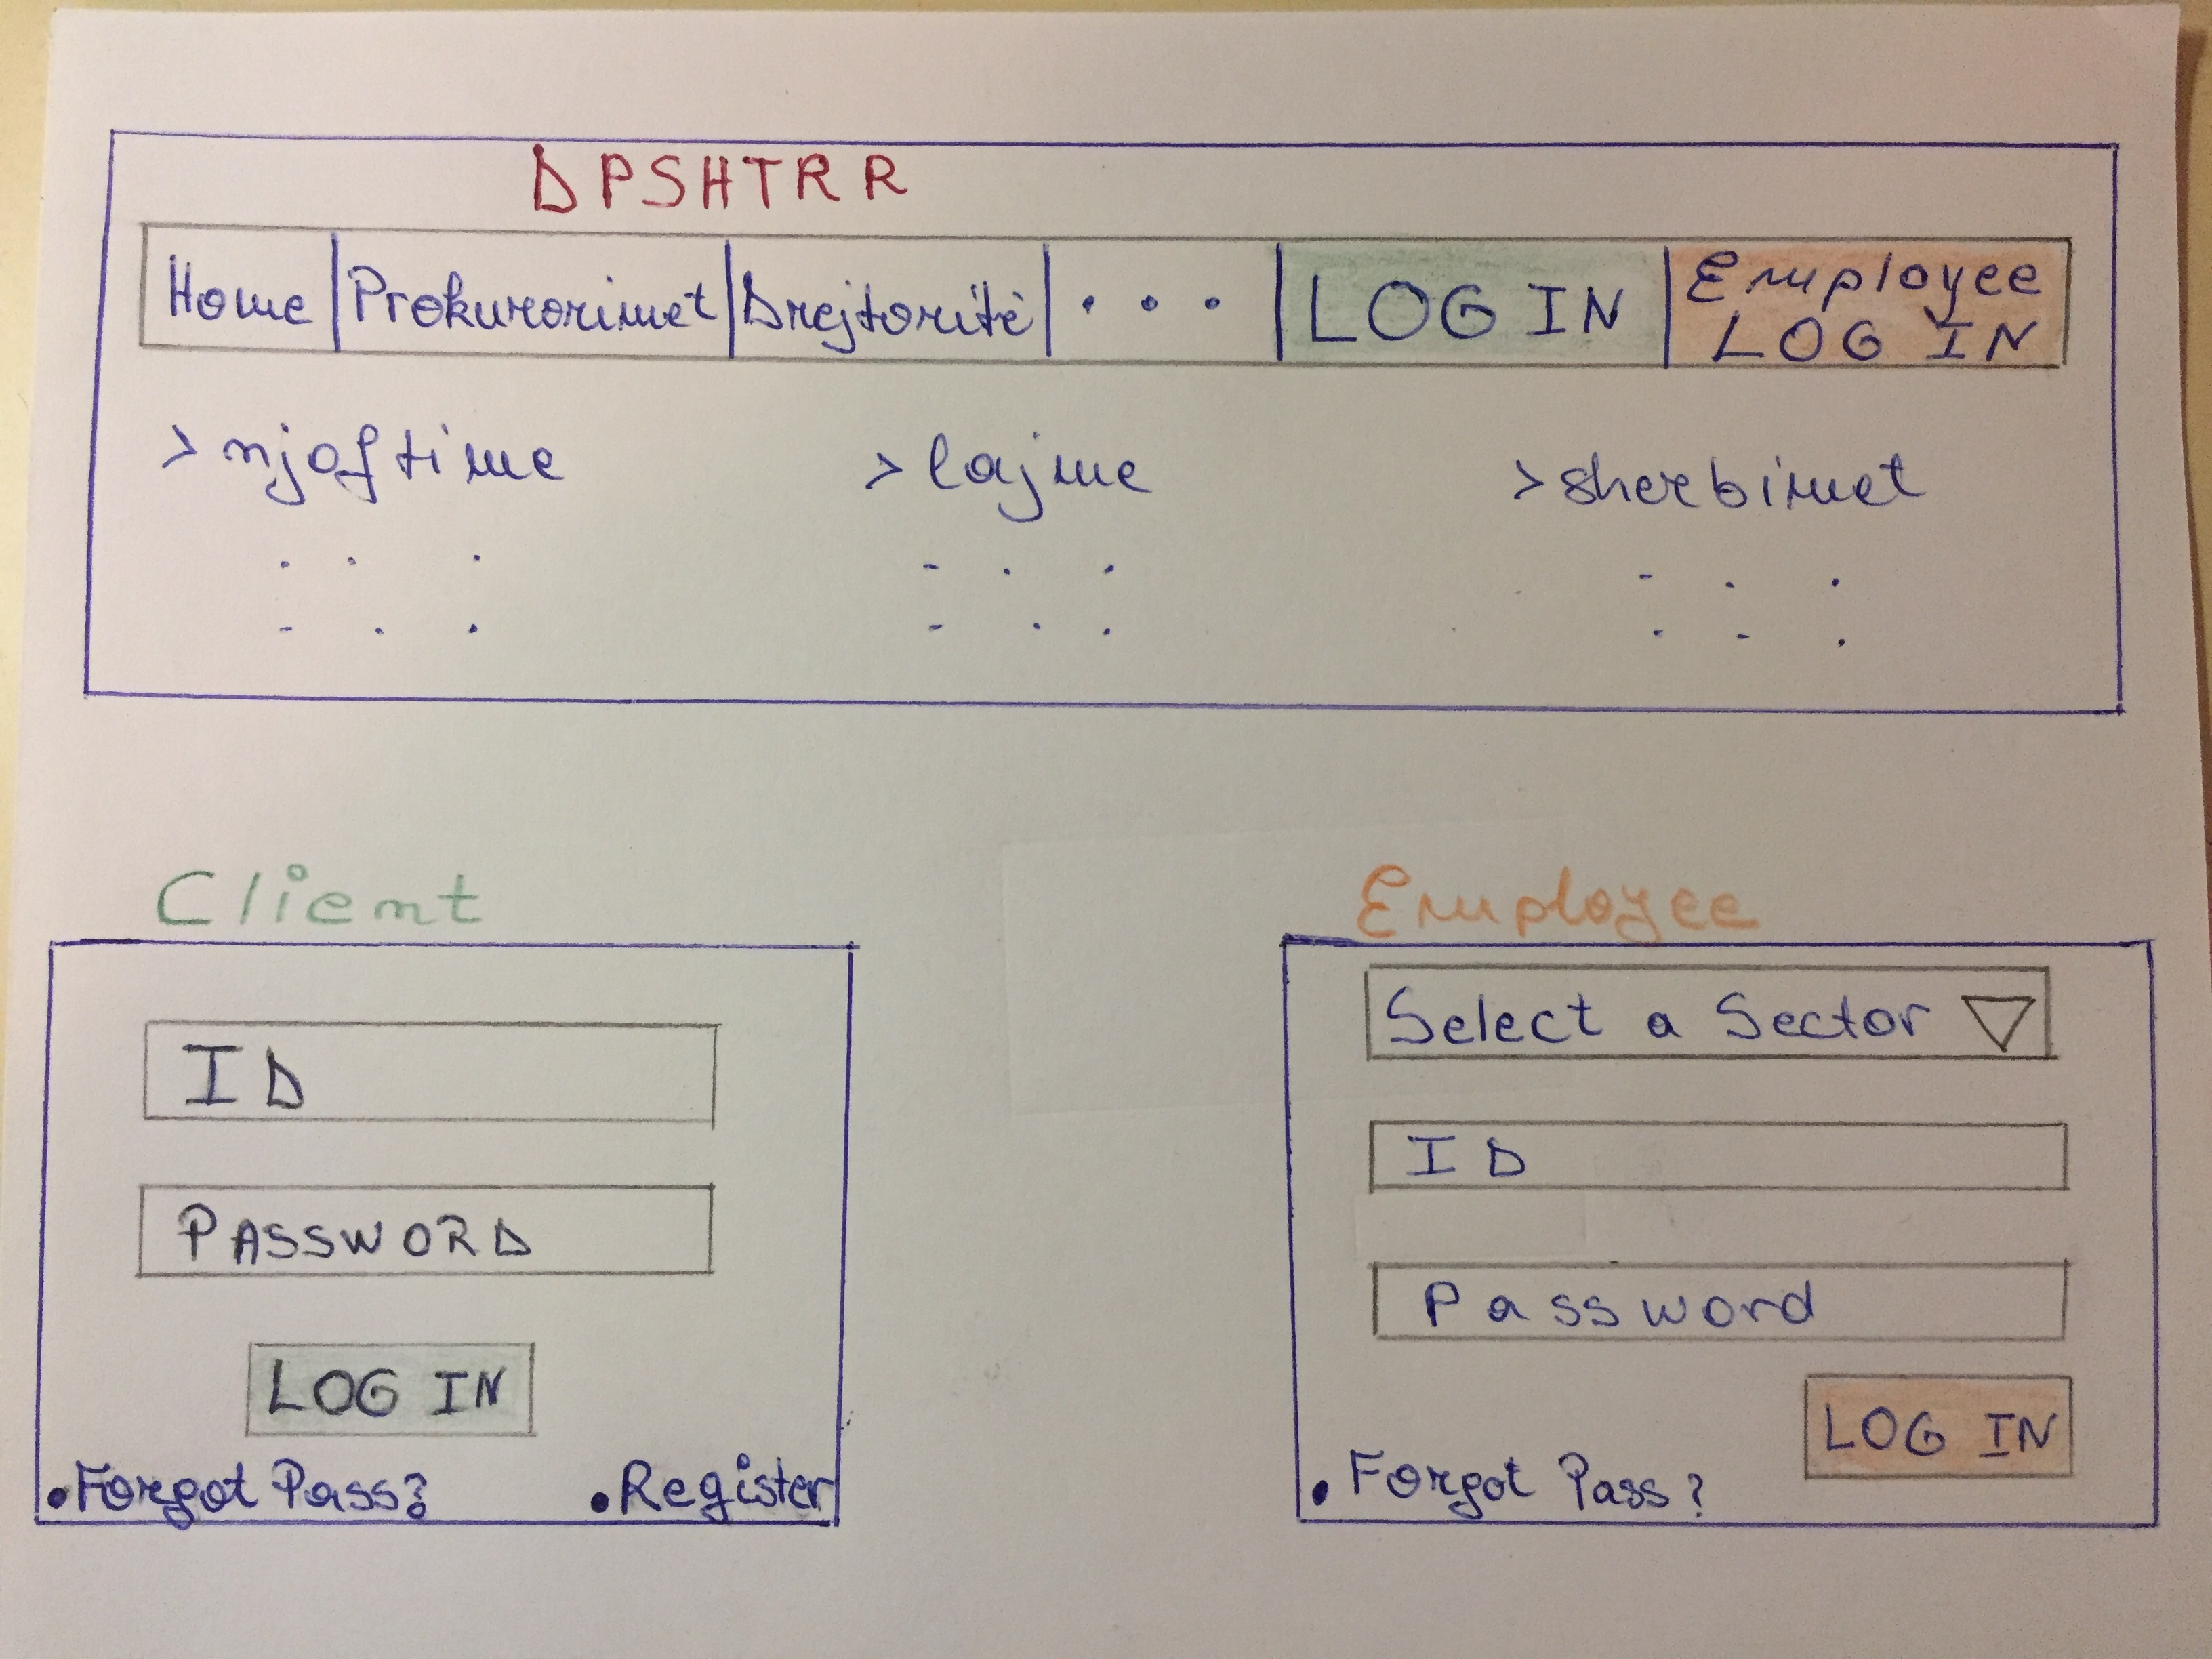 DPSHTRR
Home Prokurorimet Drejtoritë . . . LOG IN Employee LOG IN
> njoftime > lajme > sherbimet
Client
ID
PASSWORD
LOG IN
• Forgot Pass? • Register
Employee
Select a Sector
ID
Password
LOG IN
• Forgot Pass?